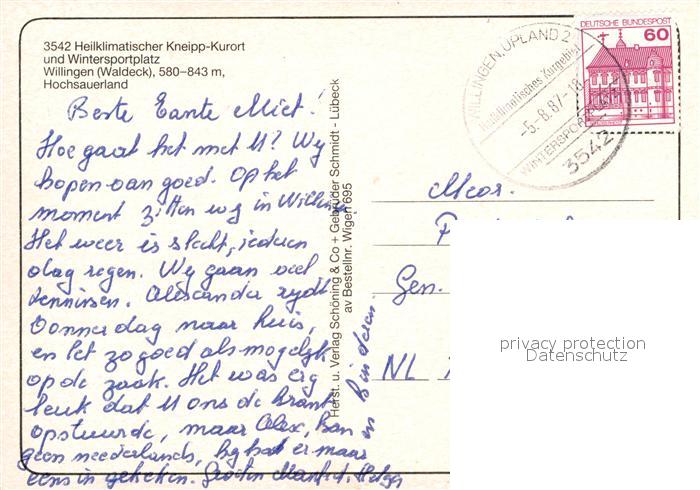 3542 Heilklimatischer Kneipp-Kurort
und Wintersportplatz
Willingen (Waldeck), 580–843 m,
Hochsauerland
Beste Tante Miet!
Hoe gaat het met U? Wy
hopen van goed. Op het
moment zitten wy in Willingen
Het weer is slecht, iederen
dag regen. Wy gaan veel
tennissen. Alexander rydt
Donnerdag naar huis,
en let zo goed als mogelyk
op de zaak. Het was erg
leuk dat U ons de krant
opstuurde, maar Alex, kan
geen neederlands, hy hat er maar
eens in gekeken. Groeten Manfred, Helga
en Kinderen.
Herst. u. Verlag Schöning & Co + Gebrüder Schmidt - Lübeck
av Bestellnr. Wigen 695
DEUTSCHE BUNDESPOST
60
WILLINGEN, UPLAND 2
Heilklimatisches Kurgebiet
-5.8.87-18
WINTERSPORTPLATZ
3542
Gen.
NL
privacy protection
Datenschutz